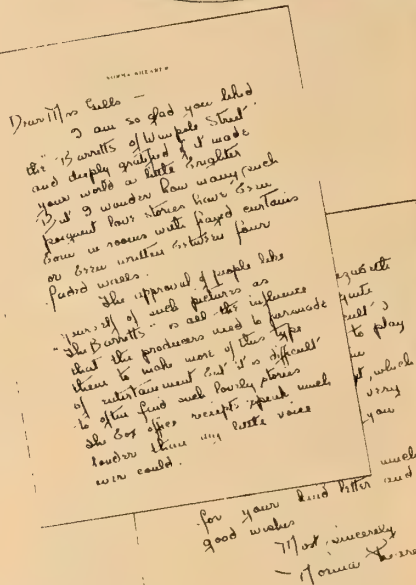 NORMA SHEARER
Dear Mrs Gills –
I am so glad you liked
the "Barretts of Wimpole Street"
and deeply gratified if it made
your world a little brighter
But I wonder how many such
poignant love stories have been
born in rooms with frayed curtains
or been written between four
faded walls.
The approval of people like
yourself of such pictures as
"The Barretts" is all the influence
that the producers need to persuade
them to make more of this type
of entertainment but it's difficult
to often find such lovely stories
The box office receipts speak much
louder than my little voice
ever could.
quite
to play
which
very
you
much
for your kind letter and
good wishes
Most sincerely
Norma Shearer